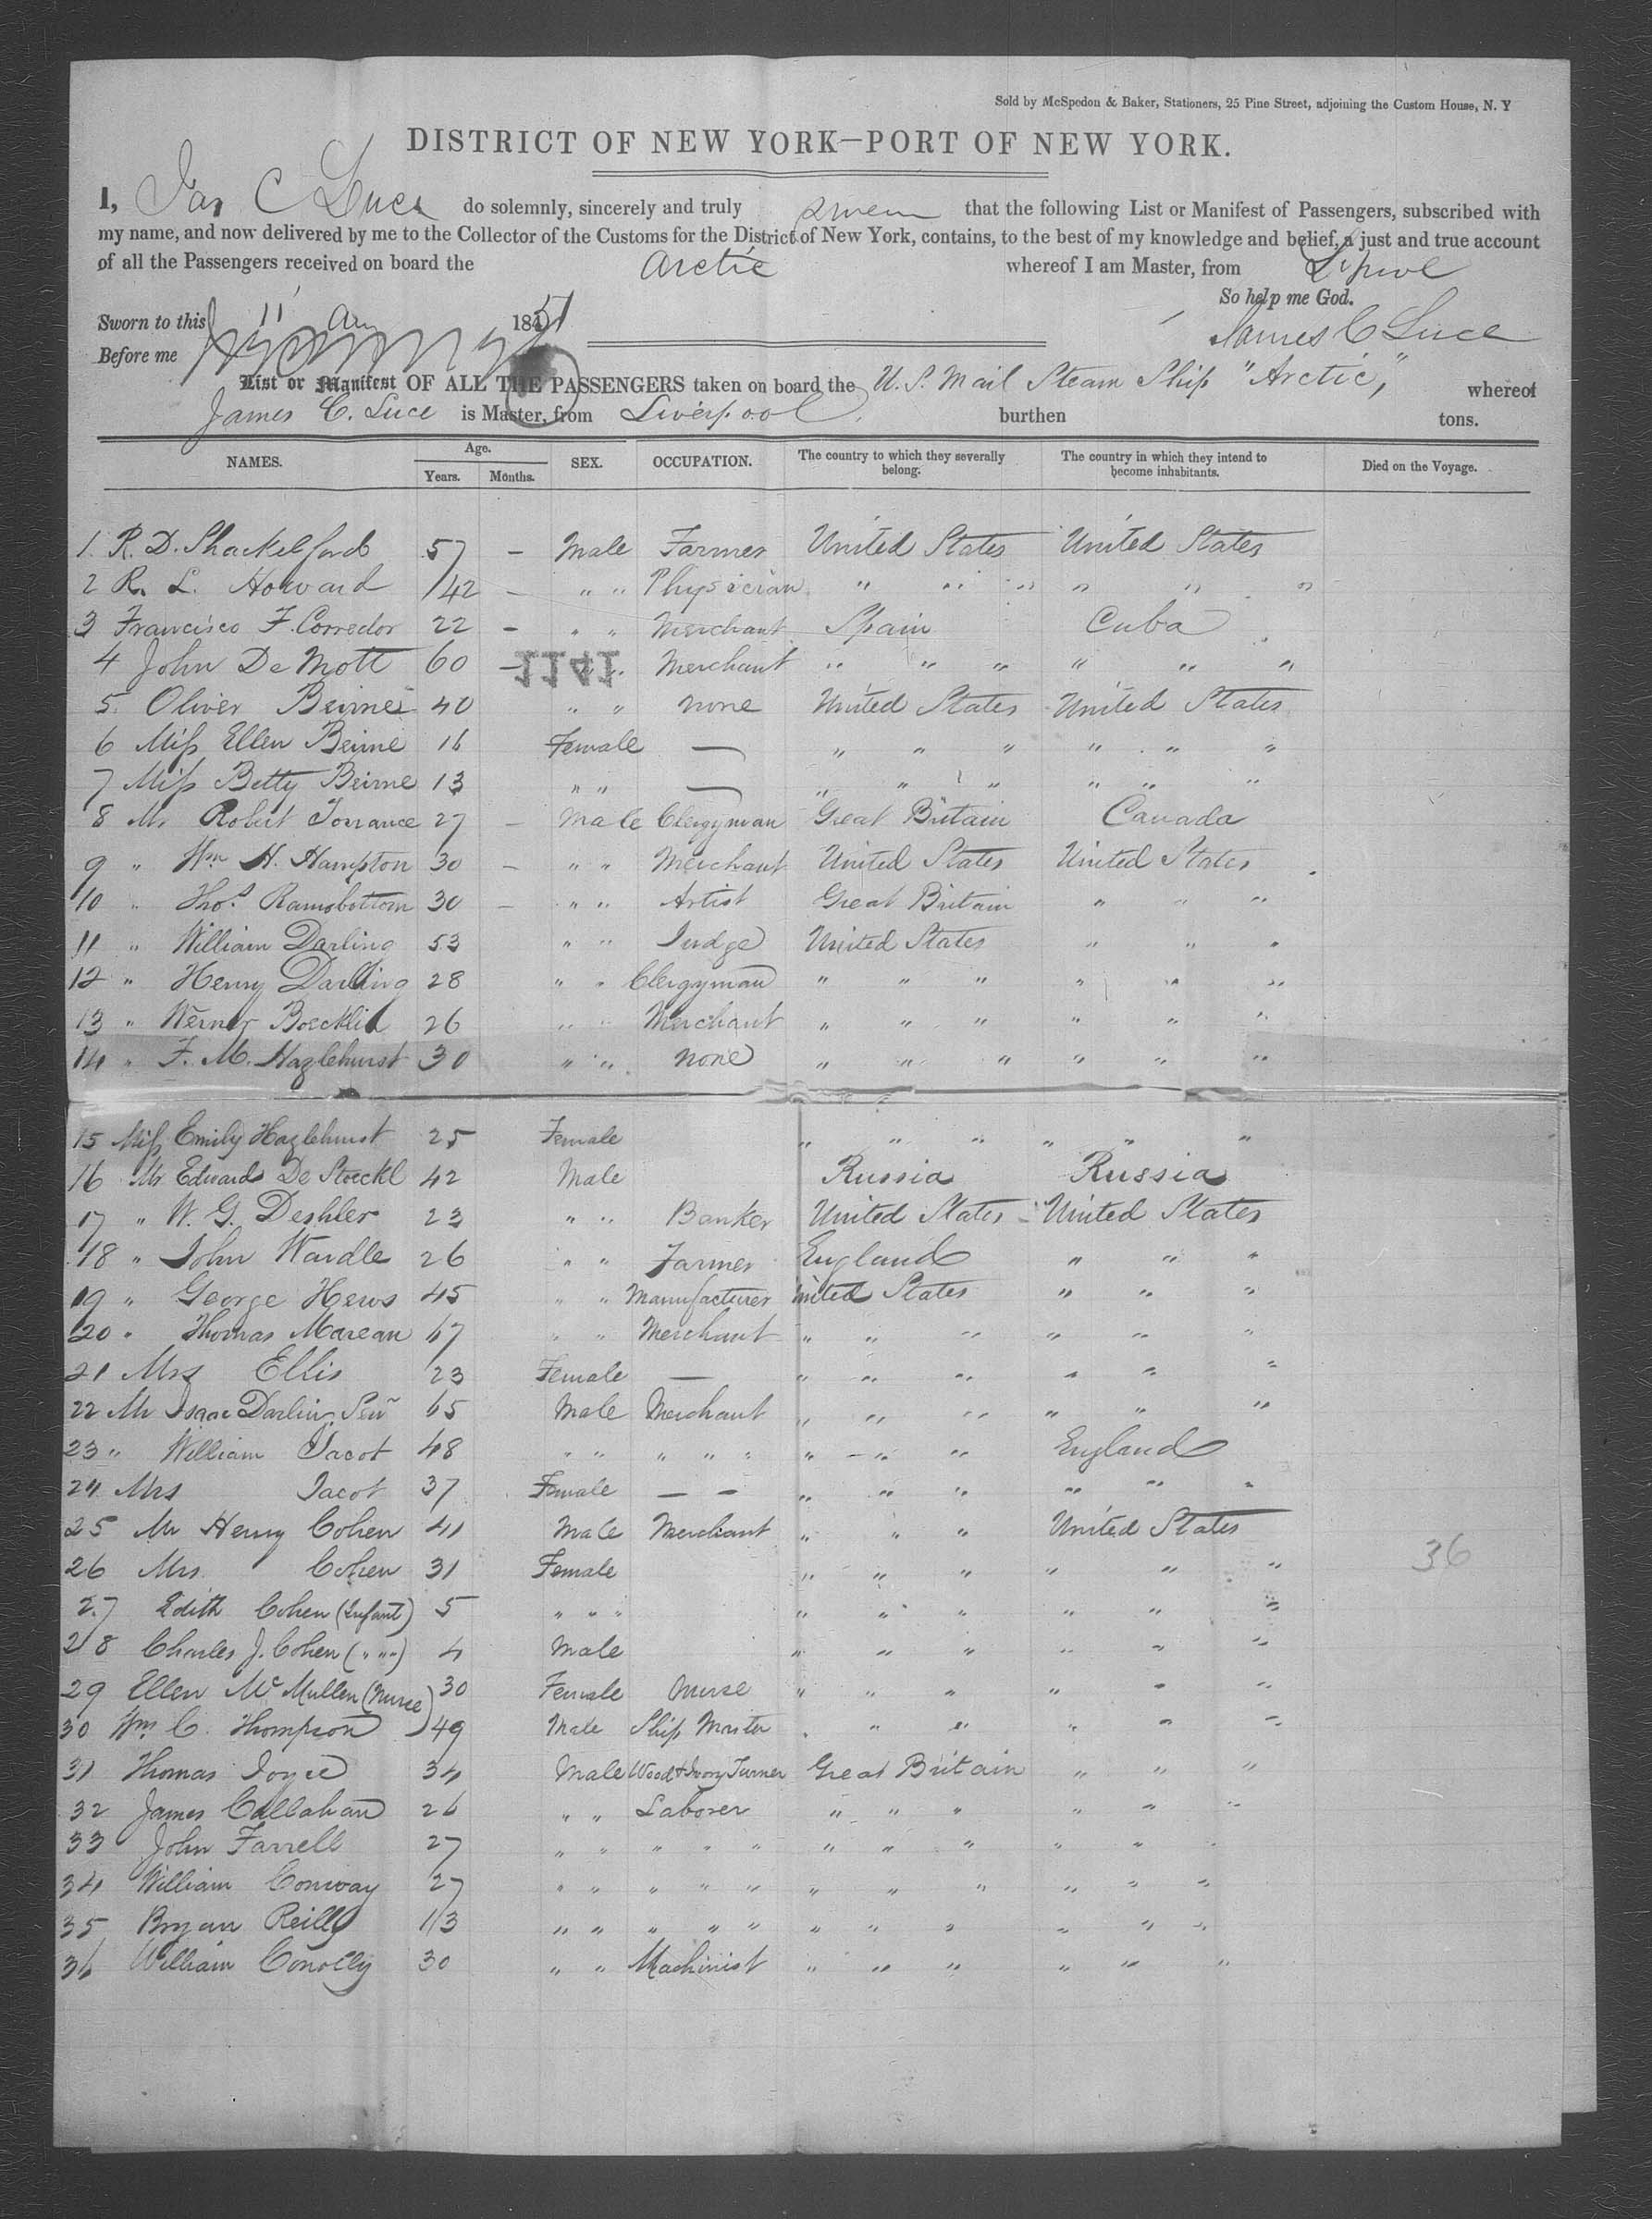 Sold by McSpedon & Baker, Stationers, 25 Pine Street, adjoining the Custom House, N. Y
DISTRICT OF NEW YORK—PORT OF NEW YORK.
I, Jas C Luce do solemnly, sincerely and truly swear that the following List or Manifest of Passengers, subscribed with
my name, and now delivered by me to the Collector of the Customs for the District of New York, contains, to the best of my knowledge and belief, a just and true account
of all the Passengers received on board the Arctic whereof I am Master, from L'pool
So help me God.
Sworn to this 11 Aug 1851
James C Luce
Before me
List or Manifest OF ALL THE PASSENGERS taken on board the U. S. Mail Steam Ship "Arctic", whereof
James C. Luce is Master, from Liverpool, burthen tons.
NAMES. Age. Years. Months. SEX. OCCUPATION. The country to which they severally belong. The country in which they intend to become inhabitants. Died on the Voyage.
1 R. D. Shackelford 57 – Male Farmer United States United States
2 R. L. Howard 42 – " " Physician " " " " " "
3 Francisco F. Corredor 22 – " " Merchant Spain Cuba
4 John De Mott 60 – 1141 " Merchant " " " " " "
5 Oliver Beirne 40 " " None United States United States
6 Miss Ellen Beirne 16 Female — " " " " " "
7 Miss Betty Beirne 13 " " — " " " " " "
8 Mr Robert Torrance 27 – Male Clergyman Great Britain Canada
9 " Wm H. Hampton 30 – " " Merchant United States United States
10 " Thos. Ramsbottom 30 – " " Artist Great Britain " " "
11 " William Darling 53 " " Judge United States " " "
12 " Henry Darling 28 " " Clergyman " " " " " "
13 " Werner Boecklid 26 " " Merchant " " " " " "
14 " F. M. Hazlehurst 30 " " None " " " " " "
15 Miss Emily Hazlehurst 25 Female " " " " " "
16 Mr Edward De Stoeckl 42 Male Russia Russia
17 " W. G. Deshler 23 " " Banker United States United States
18 " John Wardle 26 " " Farmer England " " "
19 " George Hews 45 " " Manufacturer United States " " "
20 " Thomas Marean 67 " " Merchant " " " " " "
21 Mrs Ellis 23 Female — " " " " " "
22 Mr Isaac Darling Senr 65 Male Merchant " " " " " "
23 " William Jacot 48 " " " " " " " " England
24 Mrs Jacot 37 Female – – " " " " " "
25 Mr Henry Cohen 41 Male Merchant " " " United States
26 Mrs Cohen 31 Female " " " " " " 36
27 Edith Cohen (Infant) 5 " " " " " " " " "
28 Charles J. Cohen ( " " ) 4 Male " " " " " "
29 Ellen McMullen (Nurse) 30 Female Nurse " " " " " "
30 Wm C. Thompson 49 Male Ship Master " " " " " "
31 Thomas Joyce 34 Male Wood & Ivory Turner Great Britain " " "
32 James Callahan 26 " " Laborer " " " " " "
33 John Farrell 27 " " " " " " " " " " "
34 William Conway 27 " " " " " " " " " " "
35 Bryan Reilly 13 " " " " " " " " " " "
36 William Conolly 30 " " Machinist " " " " " "